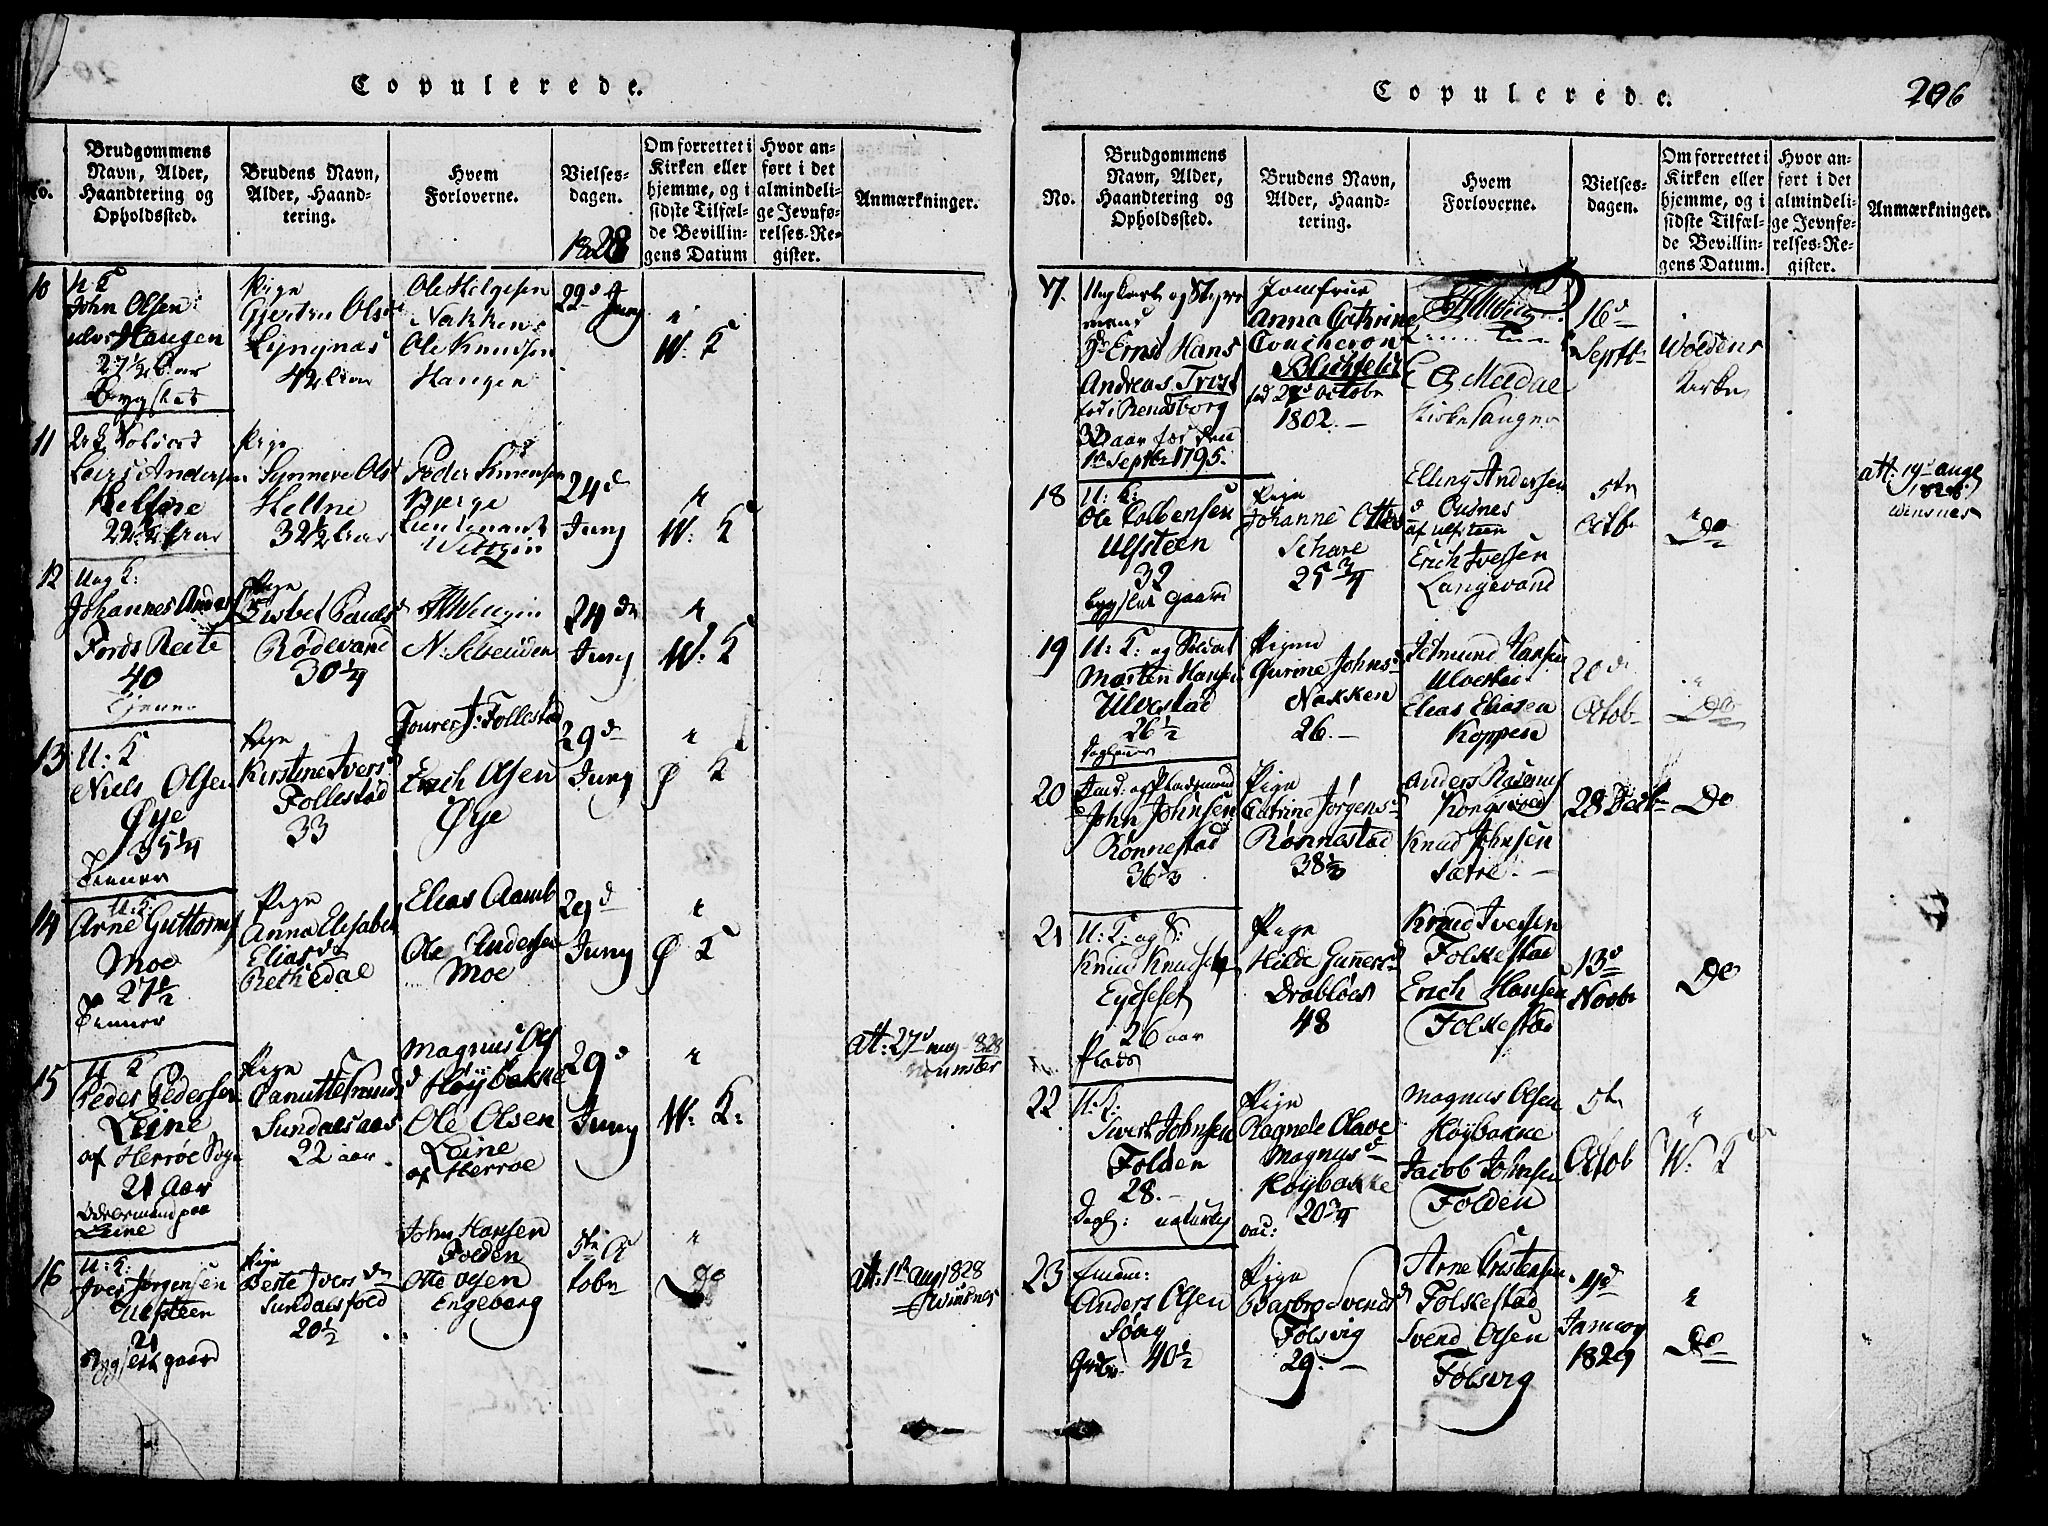 Copulerede.
No.
Brudgommens
Navn, Alder,
Haandtering og
Opholdssted.
Brudens Navn,
Alder, Haand-
tering.
Hvem
Forloverne.
Vielses-
dagen.
1828
Om forrettet i
Kirken eller
hjemme, og i
sidste Tilfæl-
de Bevillin-
gens Datum
Hvor an-
ført i det
almindeli-
ge Jevnfø-
relses-Re-
gister.
Anmærkninger.
10
John Olsen
Haugen
27 1/2 aar
Pige
Lyngnæs
Ole Helgesen
Nakken
Ole Knudsen
Haugen
22d Juny
W: K
11
Lars Andersen
Heltne
22 1/2
Pige
Synneve Olsd
Heltne
32 1/2
Peder Simensen
Bjerge
Lieutenant
24d
Juny
W: K
12
Ung K:
Johannes Anders
40
Tjener
Pige
Lisbet
Rødevand
30 1/4
24de
Juny
W: K
13
U: K
Niels Olsen
Øye
35 1/4
Tienner
Pige
Kirstine Ivers d
Follestad
33
Follestad
Erich Olsen
Øye
29d
Juny
Ø K
14
U: K:
Arne Guttorms
Moe
27 1/2
Tienner
Pige
Anna Elisabet
Elias d
Elias Aamb
Ole Andersen
Moe
29d
Juny
Ø K
15
U K
Peder Pedersen
Leine
af Herrøe Sogn
21 Aar
Leine
Pige
Sundalsaas
22 aar
Magnus Ols
Høybakke
Ole Olsen
Leine
af Herrøe
29d
Juny
W: K:
att: 27d may 1828
16
U: K:
Iver Jørgensen
Ulfsteen
21
Pige
Berte Ivers d
20 1/2
John Hansen
Folden
Otte Olsen
Engeberg
5te Oc
tobr
Do
att: 1ste aug 1828
Copulerede.
206
No.
Brudgommens
Navn, Alder,
Haandtering og
Opholdssted.
Brudens Navn,
Alder, Haand-
tering.
Hvem
Forloverne.
Vielses-
dagen.
Om forrettet i
Kirken eller
hjemme, og i
sidste Tilfæl-
de Bevillin-
gens Datum.
Hvor an-
ført i det
almindeli-
ge Jevnfø-
relses-Re-
gister.
Anmærkninger.
17.
Ungkarl og Styre
mand
Hr Ernst Hans
Andreas Trost
fød i Rensborg
32 aar fød den
1ste Septbr 1795.
Jomfrue
Anna Cathrine
Coucheron
Blichfeldt
fød 27d Octobr
1802.
Meldal
Kirkesanger
16d
Septbr
Woldens
Kirke
18
U: K:
Ole Colbensen
Ulfsteen
32
bygslet gaard
Pige
Johanne Ottes d
Schare
25 3/4
Elling Andersen
af Ulfsteen
Erich Ivessen
Langevand
5te
Octb
Do
att: 19d aug
1828
Winsnes
19
U: K: og Soldat
Morten Hansen
Ulvestad
26 1/2
Pigen
Gurine Johns d
Nakken
26.
Jetmund Hansen
Ulvestad
Elias Eliasen
Koppen
20d
Octob
Do
20
John Johnsen
Rønnestad
36 1/3
Pige
Catrine Jørgens d
Rønnestad
38 1/3
Anders Rasmus
Kongsvold
Knud Johnsen
Sætre.
28 Octbr
Do
21
U: K: og S:
Knud Knudsen
Eydseset
26 aar
Plads
Pige
Hilde Gunners d
Drabløes
48
Knud Ivessen
Folkestad
Erich Hansen
Folkestad
13d
Novbr
Do
22
U: K:
Sivert Johnsen
Folden
28.
Dagl: naturlig
Pige
Ragnele Olave
Magnus d
Høybakke
20 3/4
vac:
Magnus Olsen
Høybakke
Jacob Johnsen
Folden
5te
Octob
W: K
23
Enkem:
Anders Olsen
40 1/2
Pige
Barbro Svends d
Følsvig
29.
Arne Cristensen
Folkestad
Svend Olsen
Følsvig
4d
1829
Do